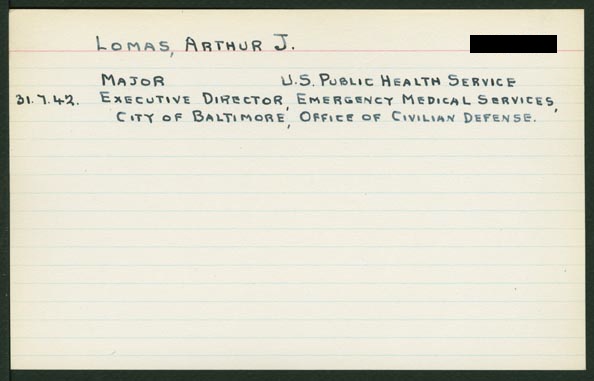 LOMAS, ARTHUR J.
MAJOR U.S. PUBLIC HEALTH SERVICE
31.7.42. EXECUTIVE DIRECTOR, EMERGENCY MEDICAL SERVICES,
CITY OF BALTIMORE, OFFICE OF CIVILIAN DEFENSE.